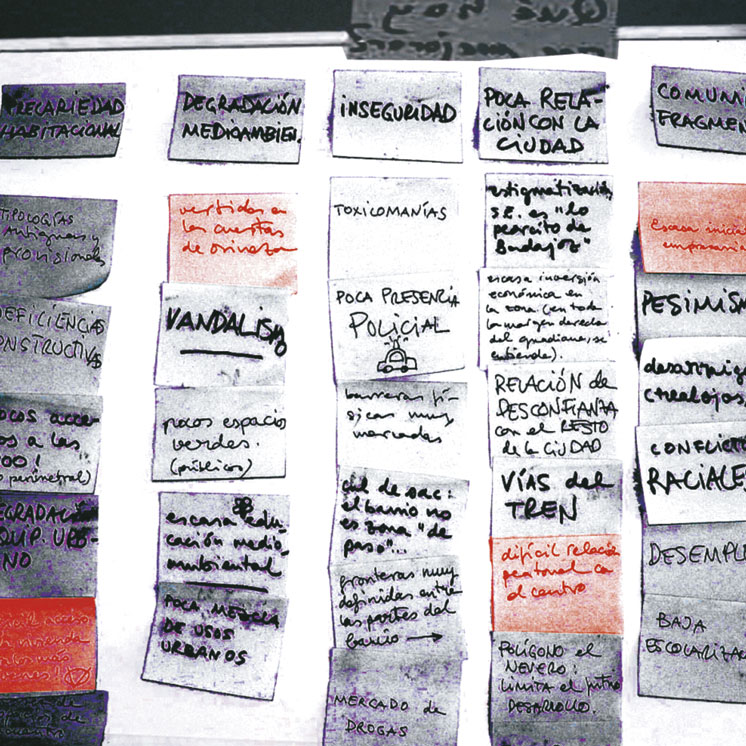 PRECARIEDAD
HABITACIONAL
TIPOLOGÍAS
antiguas y
provisionales
DEFICIENCIAS
CONSTRUCTIVAS
POCOS acce-
sos a las
perimetral)
DEGRADACIÓN
EQUIP. URBA-
NO
DEGRADACIÓN
MEDIOAMBIEN.
vertidos en
las cuestas
de orinaza
VANDALISMO
pocos espacios
verdes.
(públicos)
escasa edu-
cación medio
ambiental
POCA MEZCLA
DE USOS
URBANOS
INSEGURIDAD
TOXICOMANÍAS
POCA PRESENCIA
POLICIAL
barreras fí-
sicas muy
marcadas
cul de sac:
el barrio no
es zona "de
paso"...
fronteras muy
definidas entre
las partes del
barrio →
MERCADO de
DROGAS
POCA RELA-
CIÓN CON LA
CIUDAD
estigmatización
S.E. es "lo
peorcito de
Badajoz"
escasa inversión
económica en
la zona (en toda
la margen derecha
del guadiana, se
entiende).
RELACIÓN de
DESCONFIANZA
con el RESTO
de la CIUDAD
VÍAS del
TREN
difícil relación
peatonal con
el centro
POLÍGONO el
NEVERO:
limita el futuro
DESARROLLO.
COMUNI
FRAGMEN
escasa inicia
empresaria
PESIMISM
desarraig
CONFLICTO
RACIALES
DESEMPLE
BAJA
ESCOLARIZA